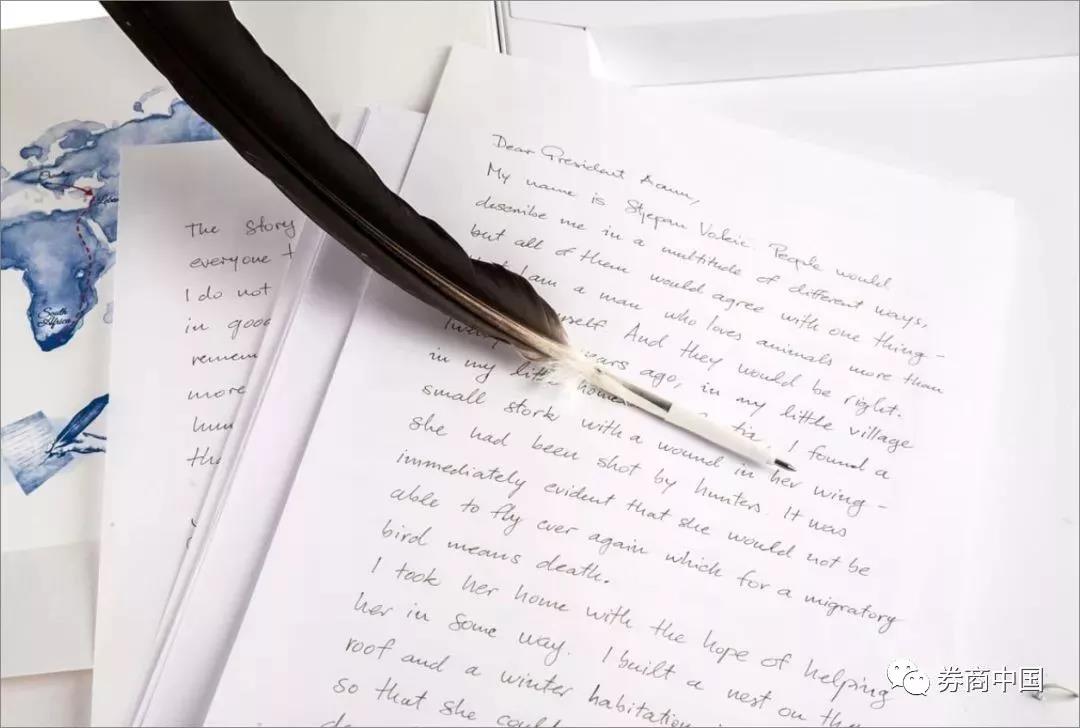 South
Africa
The story
everyone
I do not
in good
remem
more
hun
tha
Dear President Aoun,
My name is Stjepan Vokić. People would
describe me in a multitude of different ways,
but all of them would agree with one thing -
I am a man who loves animals more than
And they would be right.
years ago, in my little village
in my little home I found a
small stork with a wound in her wing -
she had been shot by hunters. It was
immediately evident that she would not be
able to fly ever again which for a migratory
bird means death.
I took her home with the hope of helping
her in some way. I built a nest on the
roof and a winter habitation
so that she could
券商中国